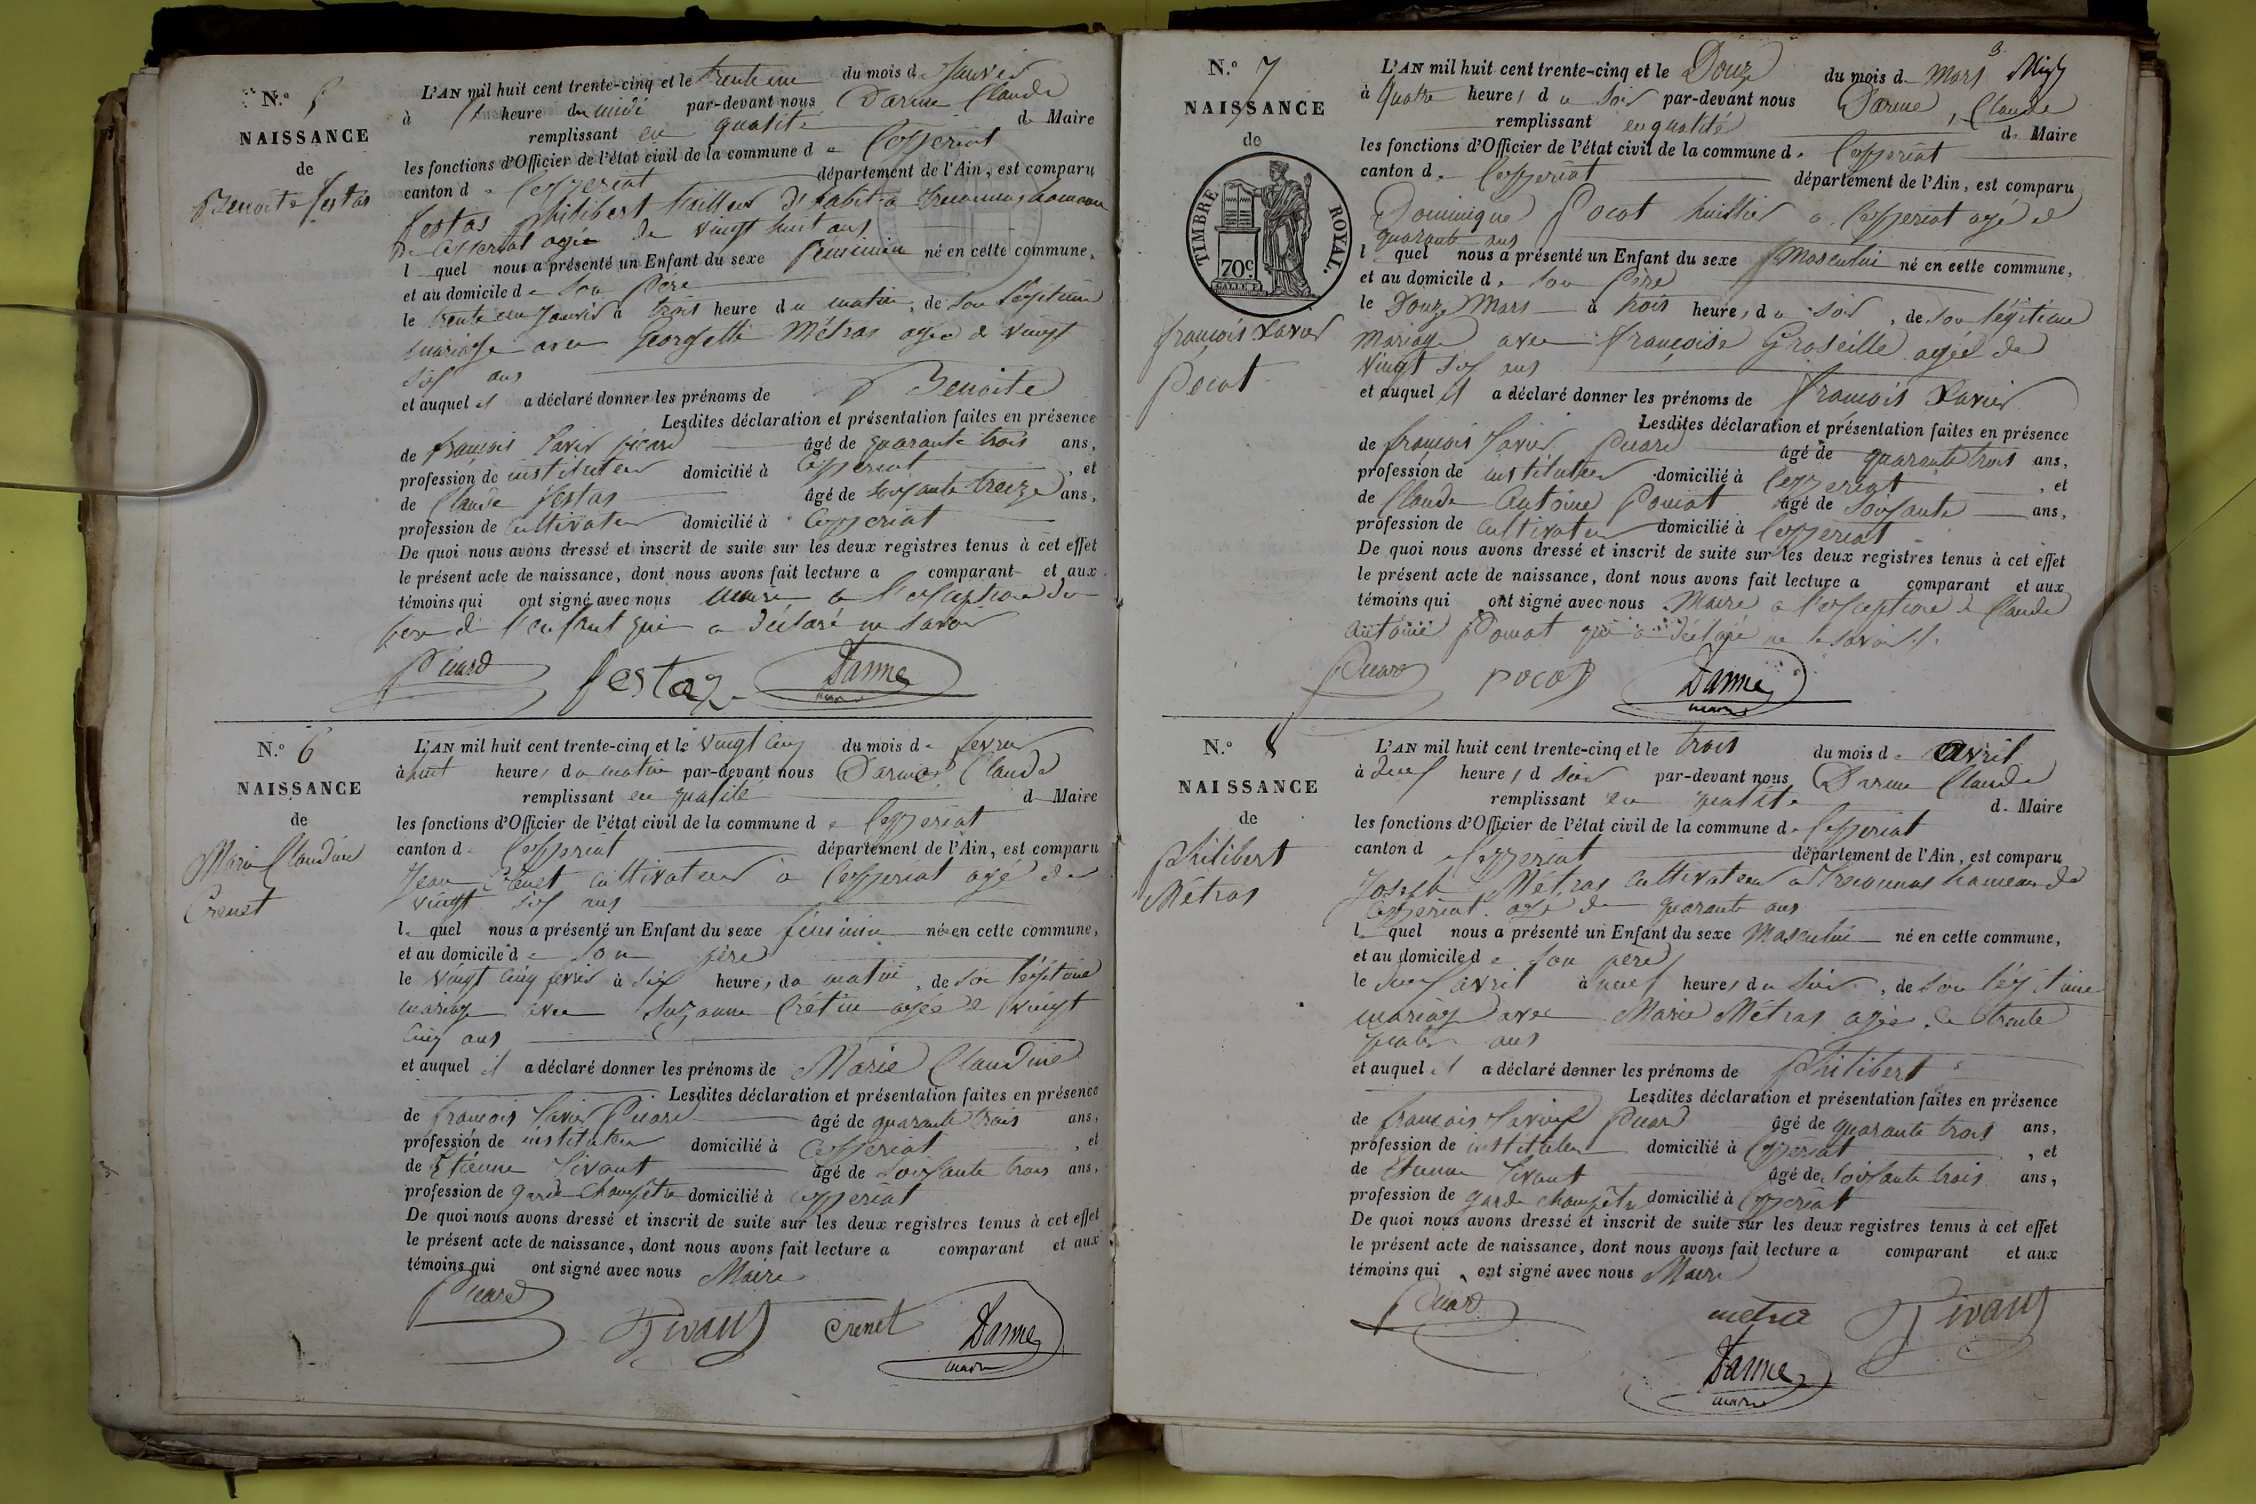 N.º 5
NAISSANCE
de
Benoite festas
L'AN mil huit cent trente-cinq et le trente un du mois de Janvier
à heure du midi par-devant nous Darme Claude
remplissant en qualité de Maire
les fonctions d'Officier de l'état civil de la commune de Ceyzeriat
canton de Ceyzeriat département de l'Ain, est comparu
festas philibert tailleur d'habit a hameau
de Ceyzeriat agé de vingt huit ans
l quel nous a présenté un Enfant du sexe feminin né en cette commune,
et au domicile de son Père
le trente un Janvier à trois heure du matin, de son légitime
mariage avec Georgette Métras agée de vingt
six ans
et auquel il a déclaré donner les prénoms de Benoite
Lesdites déclaration et présentation faites en présence
de françois Xavier picard âgé de quarante trois ans,
profession de instituteur domicilié à Ceyzeriat, et
de Claude festas âgé de soixante treize ans,
profession de Cultivateur domicilié à Ceyzeriat
De quoi nous avons dressé et inscrit de suite sur les deux registres tenus à cet effet
le présent acte de naissance, dont nous avons fait lecture a comparant et aux
témoins qui ont signé avec nous maire a l'exception du
pere de l'enfant qui a déclaré ne savoir
Picard festaz Darme
maire
N.º 6
NAISSANCE
de
Marie Claudine
Crenet
L'AN mil huit cent trente-cinq et le vingt cinq du mois de fevrier
à huit heures du matin par-devant nous Darme Claude
remplissant en qualité d Maire
les fonctions d'Officier de l'état civil de la commune de Ceyzeriat
canton de Ceyzeriat département de l'Ain, est comparu
Jean Crenet cultivateur a Ceyzeriat agé de
vingt six ans
le quel nous a présenté un Enfant du sexe féminin née en cette commune,
et au domicile de son père
le vingt cinq fevrier à six heures du matin, de son légitime
mariage avec Suzanne Crétin agée de vingt
cinq ans
et auquel il a déclaré donner les prénoms de Marie Claudine
Lesdites déclaration et présentation faites en présence
de françois Xavier Picard âgé de quarante trois ans,
profession de instituteur domicilié à Ceyzeriat, et
de Etienne Tivant âgé de soixante trois ans,
profession de garde champêtre domicilié à Ceyzeriat
De quoi nous avons dressé et inscrit de suite sur les deux registres tenus à cet effet
le présent acte de naissance, dont nous avons fait lecture a comparant et aux
témoins qui ont signé avec nous Maire
Picard
Tivant Crenet Darme
maire
3
N.º 7
NAISSANCE
de
TIMBRE ROYAL.
70c
françois Xavier
Pocot
L'AN mil huit cent trente-cinq et le Douze du mois de Mars
à Quatre heures du soir par-devant nous Darme, Claude
remplissant en qualité de Maire
les fonctions d'Officier de l'état civil de la commune de Ceyzeriat
canton de Ceyzeriat département de l'Ain, est comparu
Dominique Pocot huissier a Ceyzeriat agé de
quarante ans
l quel nous a présenté un Enfant du sexe Masculin né en cette commune,
et au domicile de son Père
le Douze Mars à trois heures du soir, de son légitime
mariage avec françoise Groseille agée de
vingt six ans
et auquel il a déclaré donner les prénoms de françois Xavier
Lesdites déclaration et présentation faites en présence
de françois Xavier Picard âgé de quarante trois ans,
profession de instituteur domicilié à Ceyzeriat, et
de Claude Antoine Pomat âgé de soixante ans,
profession de Cultivateur domicilié à Ceyzeriat
De quoi nous avons dressé et inscrit de suite sur les deux registres tenus à cet effet
le présent acte de naissance, dont nous avons fait lecture a comparant et aux
témoins qui ont signé avec nous Maire a l'exception de Claude
Antoine Pomat qui a déclaré ne le savoir
Picard Pocot Darme
maire
N.º 8
NAISSANCE
de
Philibert
Métras
L'AN mil huit cent trente-cinq et le trois du mois de avril
à heures d soir par-devant nous Darme Claude
remplissant en qualité de Maire
les fonctions d'Officier de l'état civil de la commune de Ceyzeriat
canton d Ceyzeriat département de l'Ain, est comparu
Joseph Métras cultivateur a hameau de
Ceyzeriat agé de quarante ans
le quel nous a présenté un Enfant du sexe Masculin né en cette commune,
et au domicile de son père
le avril à heures du soir, de son légitime
mariage avec Marie Métras agée de trente
quatre ans
et auquel il a déclaré donner les prénoms de Philibert
Lesdites déclaration et présentation faites en présence
de françois Xavier Picard âgé de quarante trois ans,
profession de instituteur domicilié à Ceyzeriat, et
de Etienne Tivant âgé de soixante trois ans,
profession de garde champêtre domicilié à Ceyzeriat
De quoi nous avons dressé et inscrit de suite sur les deux registres tenus à cet effet
le présent acte de naissance, dont nous avons fait lecture a comparant et aux
témoins qui ont signé avec nous Maire
Picard metra Tivant
Darme
maire